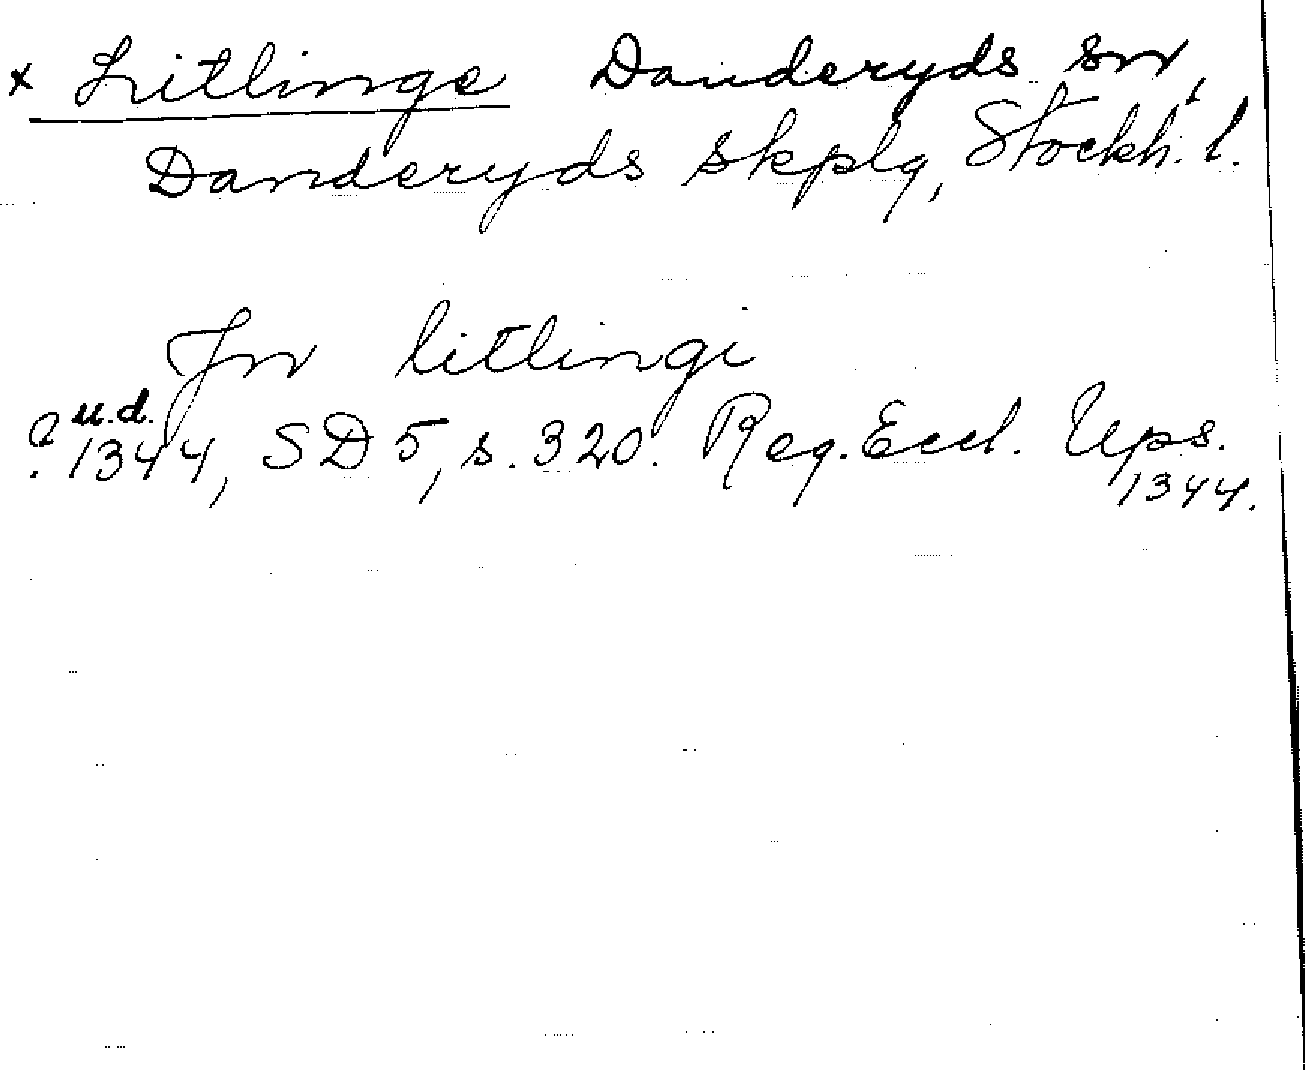 x Litlinge Danderyds sn,
Danderyds skplg, Stockh. l.
In litlingi
? u.d. 1344, SD 5, s. 320. Reg. Eccl. Ups.
1344.